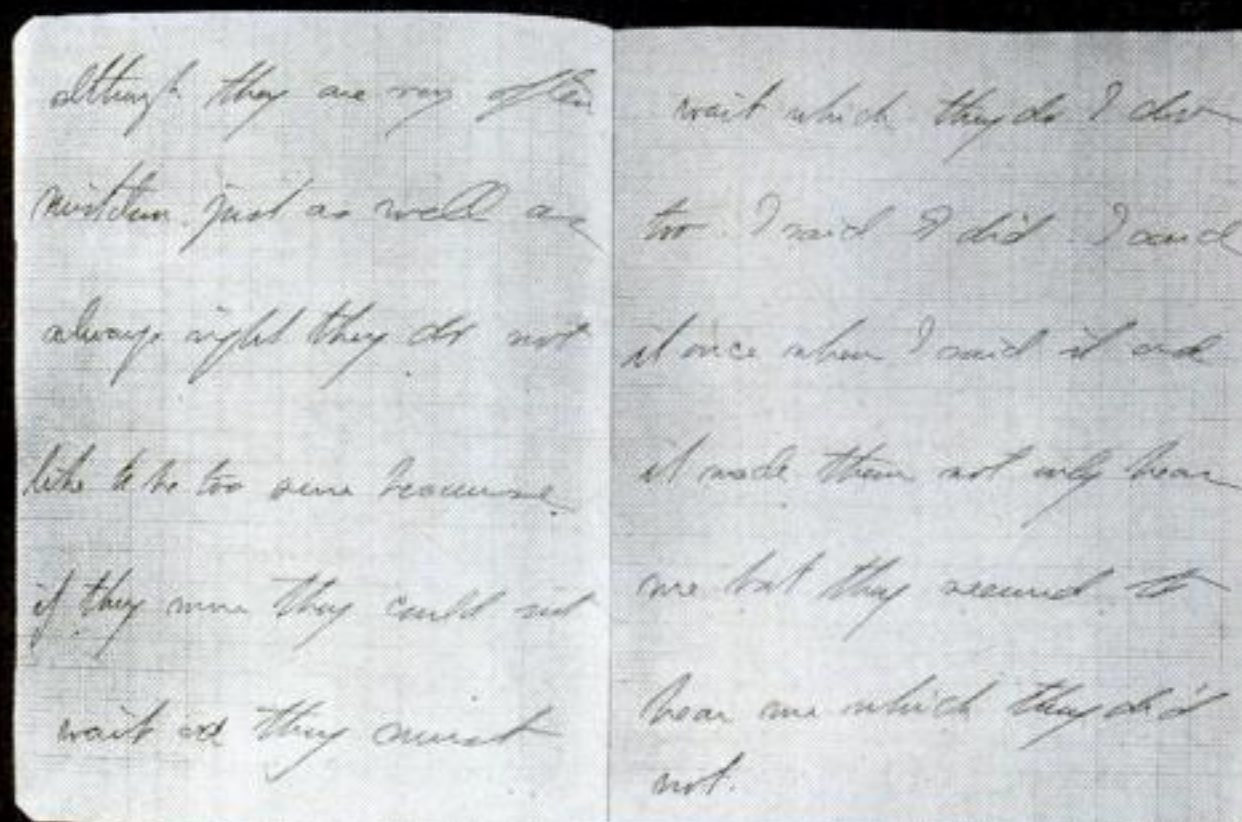 although they are very often
mistaken just as well as
always right they do not
like to be too sure because
if they were they could not
wait and they must
wait which they do I do
too. I said I did. I said
it once when I said it and
it made them not only hear
me but they seemed to
hear me which they did
not.